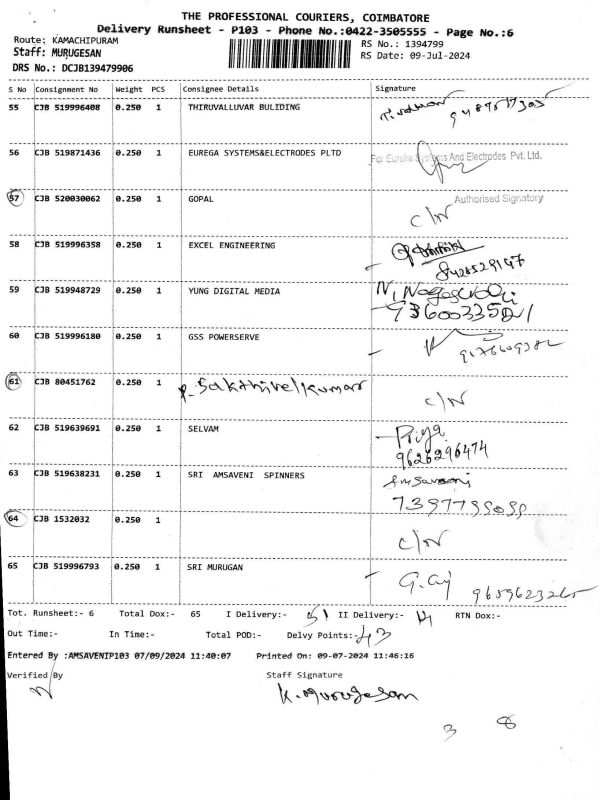 THE PROFESSIONAL COURIERS, COIMBATORE
Delivery Runsheet - P103 - Phone No.:0422-3505555 - Page No.:6
Route: KAMACHIPURAM RS No.: 1394799
Staff: MURUGESAN RS Date: 09-Jul-2024
DRS No.: DCJB139479906
S No Consignment No Weight PCS Consignee Details Signature
55 CJB 519996408 0.250 1 THIRUVALLUVAR BULIDING
56 CJB 519871436 0.250 1 EUREGA SYSTEMS&ELECTRODES PLTD For Eureka Systems And Electrodes Pvt. Ltd.
Authorised Signatory
57 CJB 520030062 0.250 1 GOPAL C/N
58 CJB 519996358 0.250 1 EXCEL ENGINEERING
59 CJB 519948729 0.250 1 YUNG DIGITAL MEDIA
60 CJB 519996180 0.250 1 GSS POWERSERVE
61 CJB 80451762 0.250 1 P. Sakthivelkumar C/N
62 CJB 519639691 0.250 1 SELVAM Priya
9626296474
63 CJB 519638231 0.250 1 SRI AMSAVENI SPINNERS
64 CJB 1532032 0.250 1 C/N
65 CJB 519996793 0.250 1 SRI MURUGAN
Tot. Runsheet:- 6 Total Dox:- 65 I Delivery:- 51 II Delivery:- RTN Dox:-
Out Time:- In Time:- Total POD:- Delvy Points:- 43
Entered By :AMSAVENIP103 07/09/2024 11:40:07 Printed On: 09-07-2024 11:46:16
Verified By Staff Signature
K. Murugesan
3 8